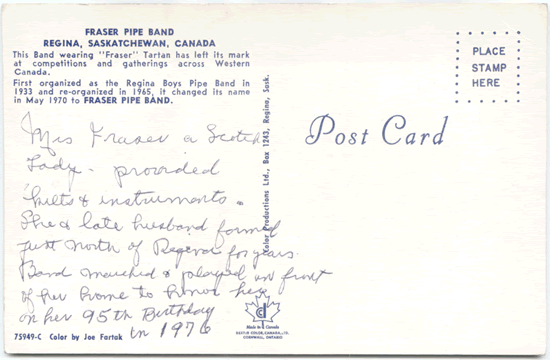 FRASER PIPE BAND
REGINA, SASKATCHEWAN, CANADA
This Band wearing "Fraser" Tartan has left its mark
at competitions and gatherings across Western
Canada.
First organized as the Regina Boys Pipe Band in
1933 and re-organized in 1965, it changed its name
in May 1970 to FRASER PIPE BAND.
PLACE
STAMP
HERE
Post Card
Mrs Fraser a Scotch
Lady - provided
kilts & instruments -
She & late husband farmed
just north of Regina for years.
Band marched & played in front
of her home to honor her
on her 95th Birthday
in 1976
Color Productions Ltd., Box 1243, Regina, Sask.
Made in Canada
CORNWALL, ONTARIO
75949-C Color by Joe Fortak